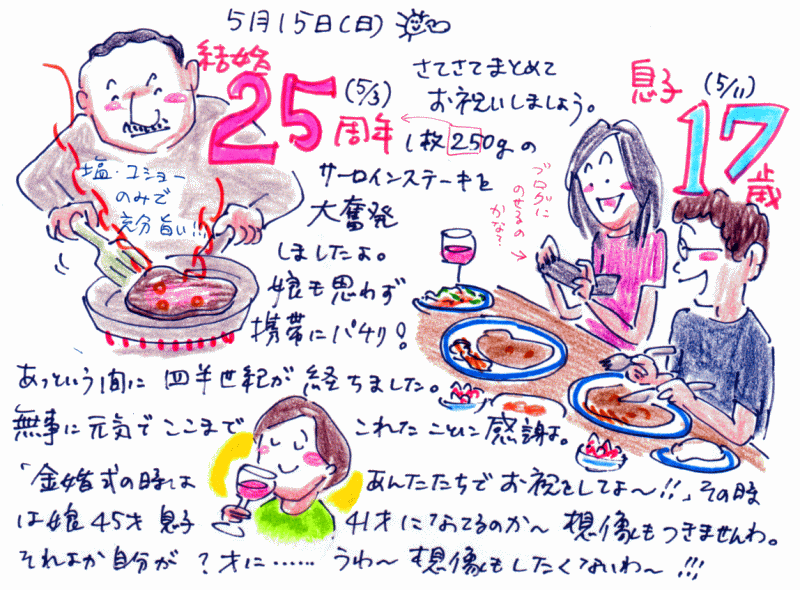 5月15日(日)
結婚
25周年
(5/3)
さてさてまとめて
お祝いしましょう。
息子
(5/11)
17歳
1枚250gの
サーロインステーキを
大奮発
しましたよ。
娘も思わず
携帯にパチリ!
塩・コショー
のみで
充分旨い!!
ブログに
のせるの
かな?
あっという間に 四半世紀が 経ちました。
無事に元気でここまで これたことに感謝よ。
「金婚式の時は あんたたちでお祝をしてよ〜!!」その時
は娘45才 息子 41才になってるのか〜 想像もつきませんわ。
それよか自分が ?才に…… うわ〜 想像もしたくないわ〜 !!!